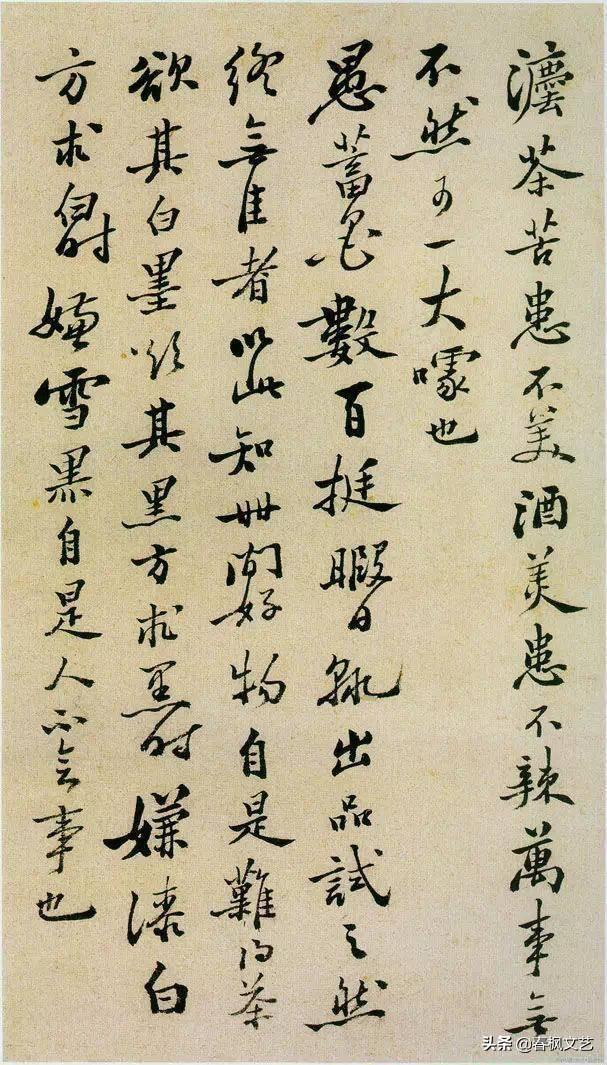 茶苦患不美酒美患不辣萬事無
不然可一大噱也
愚蓄墨數百挺暇日輒出品試之然
終無佳者以此知世間好物自是難得茶
欲其白墨欲其黑方求黑時嫌漆白
方求白時嫌雪黑自是人不會事也
头条 @春枫文艺